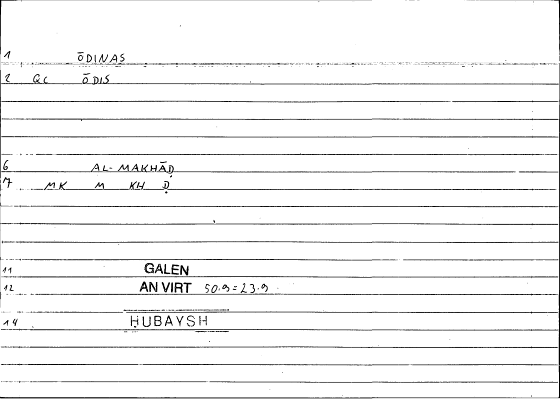 1 ŌDINAS
2 GC ŌDIS
6 AL-MAKHĀḌ
7 MK M KH Ḍ
11 GALEN
12 AN VIRT 50.9=23.9
14 ḤUBAYSH